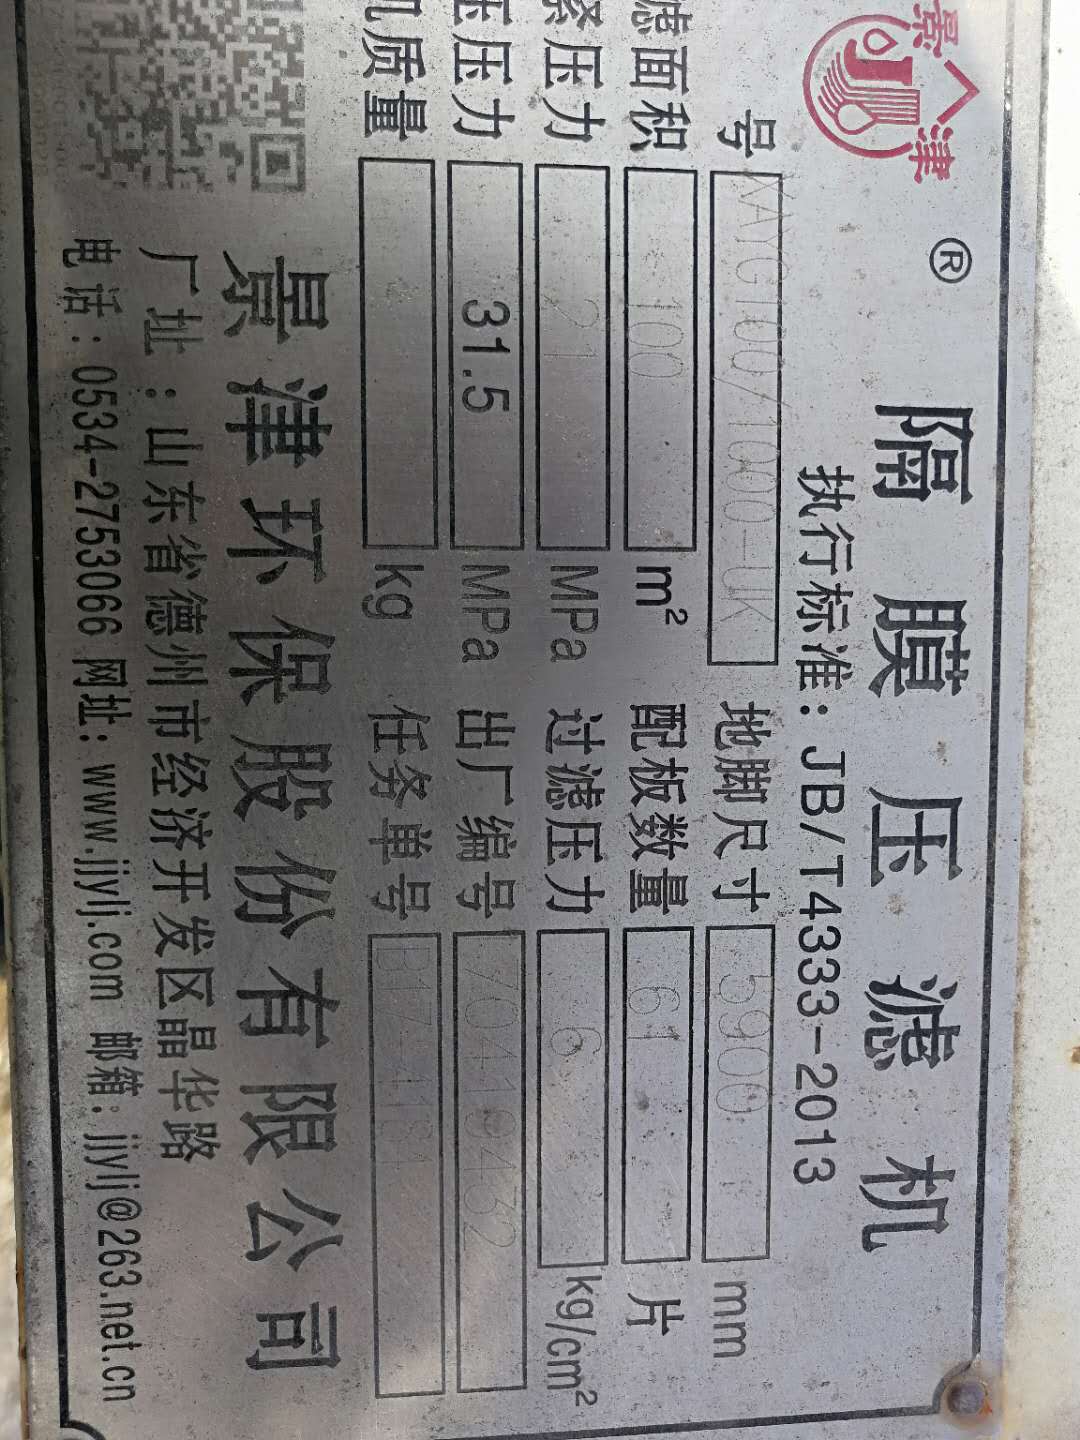 景津®
隔膜压滤机
执行标准：JB/T4333-2013
号 XAYG100/1000-UK 地脚尺寸 5900 mm
滤面积 100 m² 配板数量 61 片
压力 21 MPa 过滤压力 6 kg/cm²
压压力 31.5 MPa 出厂编号 70419432
机质量 kg 任务单号
景津环保股份有限公司
厂址：山东省德州市经济开发区晶华路
电话：0534-2753066 网址：www.jjylj.com 邮箱：jjylj@263.net.cn